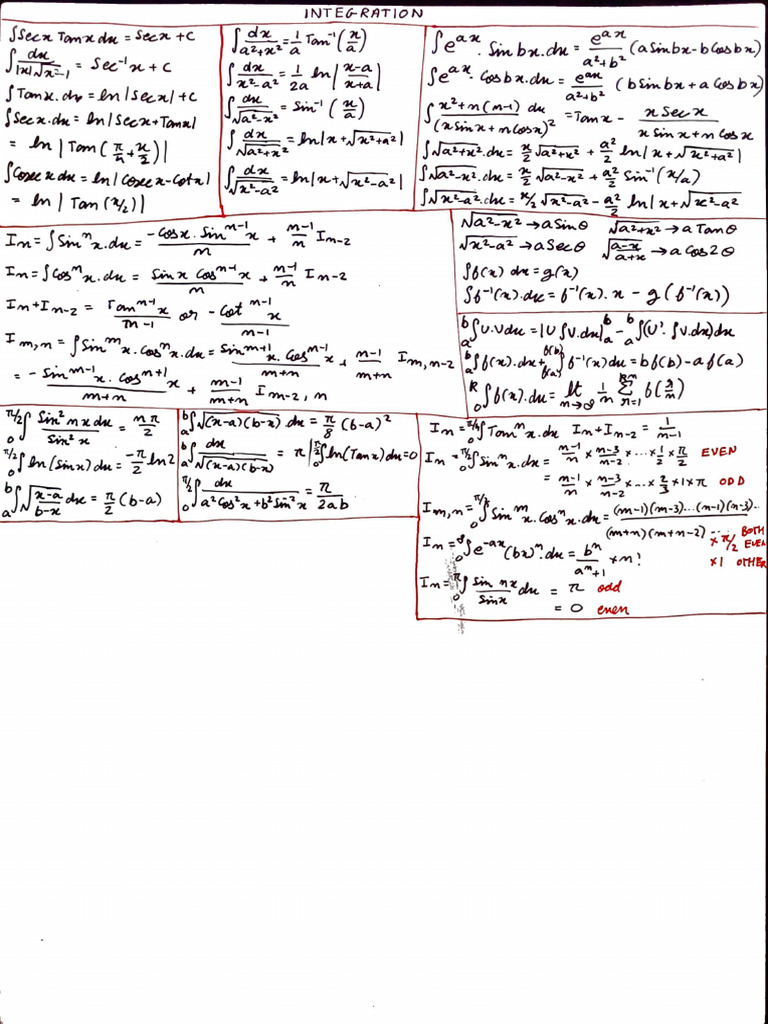 INTEGRATION
∫Secx Tanx dx = Secx + C
∫dx/(|x|√(x²-1)) = Sec⁻¹x + C
∫Tanx.dx = ln|Secx| + C
∫Secx.dx = ln|Secx+Tanx|
= ln|Tan(π/4 + x/2)|
∫Cosecx dx = ln|Cosecx-Cotx|
= ln|Tan(x/2)|
∫dx/(a²+x²) = 1/a Tan⁻¹(x/a)
∫dx/(x²-a²) = 1/2a ln|(x-a)/(x+a)|
∫dx/√(a²-x²) = Sin⁻¹(x/a)
∫dx/√(a²+x²) = ln|x+√(x²+a²)|
∫dx/√(x²-a²) = ln|x+√(x²-a²)|
∫e^(ax).Sinbx.dx = e^(ax)/(a²+b²) (aSinbx-bCosbx)
∫e^(ax).Cosbx.dx = e^(ax)/(a²+b²) (bSinbx+aCosbx)
∫(x²+n(n-1))/(xsinx+nCosx)² dx = Tanx - xSecx/(xsinx+nCosx)
∫√(a²+x²).dx = x/2 √(a²+x²) + a²/2 ln|x+√(x²+a²)|
∫√(a²-x²).dx = x/2 √(a²-x²) + a²/2 Sin⁻¹(x/a)
∫√(x²-a²).dx = x/2 √(x²-a²) - a²/2 ln|x+√(x²-a²)
Iₙ = ∫Sinⁿx.dx = -Cosx.Sinⁿ⁻¹x/n + (n-1)/n Iₙ₋₂
Iₙ = ∫Cosⁿx.dx = Sinx Cosⁿ⁻¹x/n + (n-1)/n Iₙ₋₂
Iₙ+Iₙ₋₂ = Tanⁿ⁻¹x/(n-1) or -Cotⁿ⁻¹x/(n-1)
Iₘ,ₙ = ∫Sinᵐx.Cosⁿx.dx = Sinᵐ⁺¹x.Cosⁿ⁻¹x/(m+n) + (n-1)/(m+n) Iₘ,ₙ₋₂
= -Sinᵐ⁻¹x.Cosⁿ⁺¹x/(m+n) + (m-1)/(m+n) Iₘ₋₂,ₙ
√(a²-x²) → aSinθ √(a²+x²) → aTanθ
√(x²-a²) → aSecθ √((a-x)/(a+x)) → aCos2θ
∫f(x) dx = g(x)
∫f⁻¹(x).dx = f⁻¹(x).x - g(f⁻¹(x))
ₐᵇ∫U.Vdx = |U∫V.dx|ₐᵇ - ₐᵇ∫(U'.∫V.dx)dx
ₐᵇ∫f(x).dx + ∫_f(a)^f(b) f⁻¹(x)dx = bf(b)-af(a)
₀ᵏ∫f(x).dx = lt n→∞ 1/n Σ_(r=1)^(kn) f(r/n)
₀^(π/2)∫Sin²nx dx/sin²x = nπ/2
₀^(π/2)∫ln(sinx)dx = -π/2 ln2
ₐᵇ∫√((x-a)/(b-x)) dx = π/2 (b-a)
ₐᵇ∫√((x-a)(b-x)) dx = π/8 (b-a)²
ₐᵇ∫dx/√((x-a)(b-x)) = π | ₀^(π/2)∫ln(Tanx)dx=0
₀^(π/2)∫dx/(a²Cos²x+b²Sin²x) = π/2ab
Iₙ = ₀^(π/4)∫Tanⁿx.dx Iₙ+Iₙ₋₂ = 1/(n-1)
Iₙ = ₀^(π/2)∫Sinⁿx.dx = (n-1)/n × (n-3)/(n-2) × ... × 1/2 × π/2 EVEN
= (n-1)/n × (n-3)/(n-2) × ... × 2/3 × 1 × π ODD
Iₘ,ₙ = ₀^(π/2)∫Sinᵐx.Cosⁿx.dx = (m-1)(m-3)...(n-1)(n-3)../(m+n)(m+n-2)....
BOTH
× π/2 EVEN
×1 OTHER
Iₙ = ₀^∞∫e^(-ax)(bx)ⁿ.dx = bⁿ/aⁿ+1 × n!
Iₙ = ₀^π∫sin nx/sinx dx = π odd
= 0 even